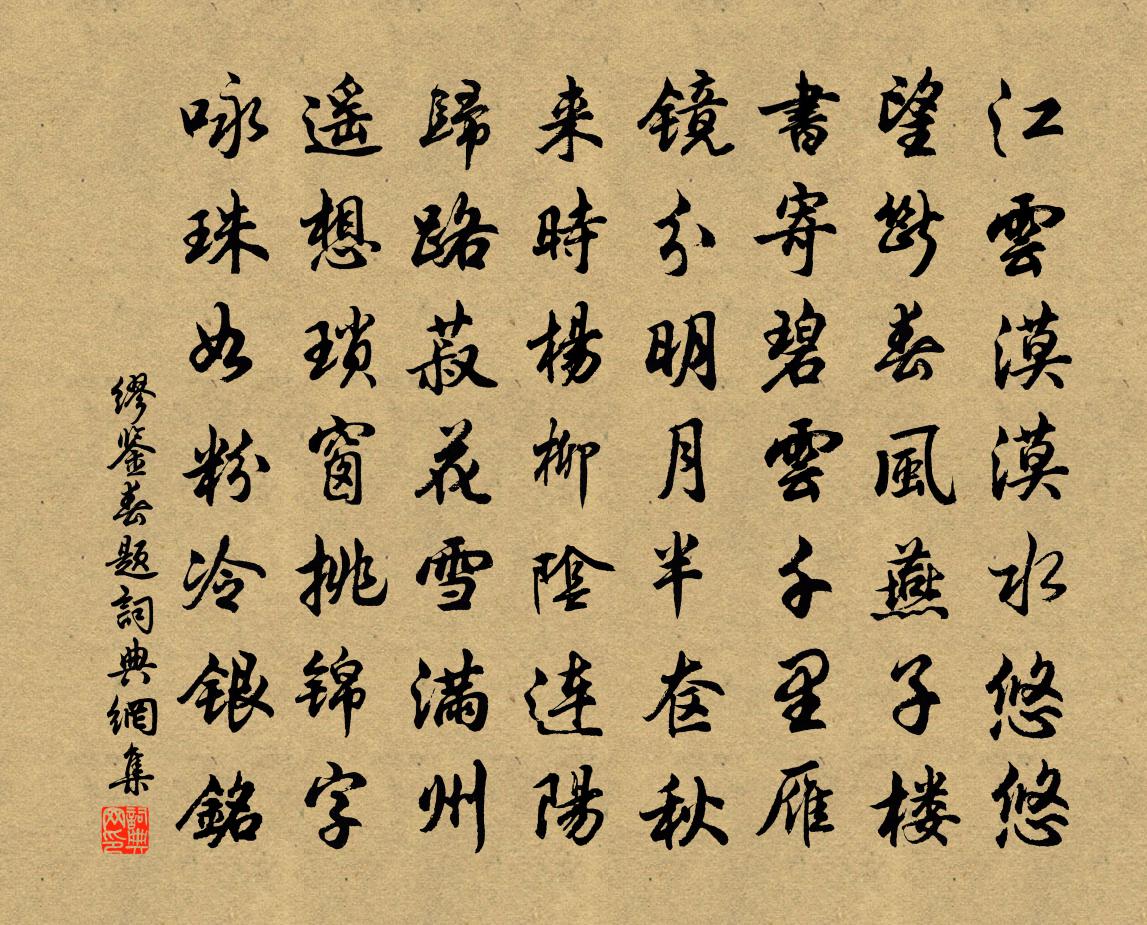 江雲漠漠水悠悠
望斷春風燕子楼
書寄碧雲千里雁
鏡分明月半奩秋
来時楊柳陰連陽
歸路菽花雪滿州
遥想瑣窗挑錦字
咏珠如粉冷銀銘
繆鉴春題詞典網集
詞典网印